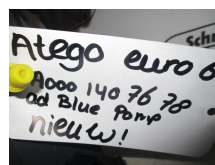 Atego euro 6
A000 140 76 78
ad Blue Pomp
nieuw!